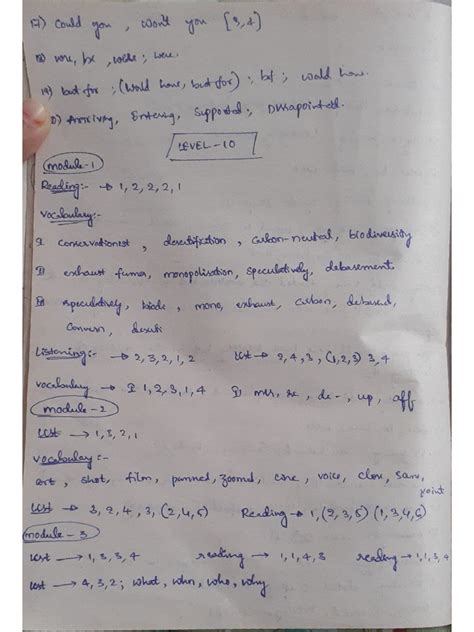 17) Could you, Won't you [3,4]
18) were, be, were; were.
19) but for; (Would have, but for); but; would have.
D) Arriving, Entering, Supported, Disappointed.
LEVEL-10
Module-1
Reading:- → 1, 2, 2, 2, 1
Vocabulary:-
I conservationist, desertification, carbon-neutral, biodiversity
II exhaust fumes, monopolisation, speculatively, debasement
III speculatively, biode, mono, exhaust, carbon, debased,
Conserv, deserti
Listening:- → 2, 3, 2, 1, 2 LCST → 2, 4, 3, (1,2,3) 3, 4
Vocabulary → I 1, 2, 3, 1, 4 II mis, re, de-, up, off
Module-2
LCST → 1, 3, 2, 1
Vocabulary:-
art, shot, film, panned, zoomed, cine, voice, close,
point
LCST → 3, 2, 4, 3, (2,4,5) Reading → 1, (2,3,5) (1,3,4,6)
Module-3
LCST → 1, 3, 3, 4 reading → 1, 1, 4, 3 reading → 1, 1, 3, 4
LCST → 4, 3, 2; what, when, who, why